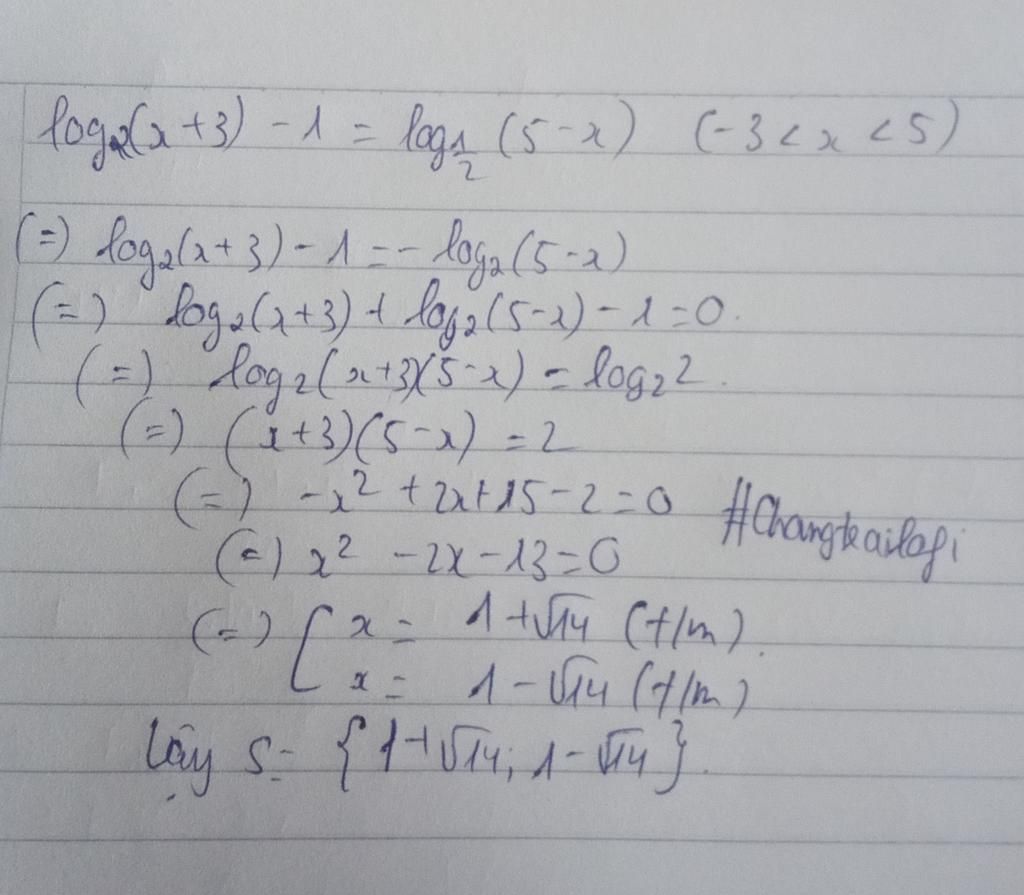 log₂(x+3) - 1 = log_{1/2} (5-x) (-3 < x < 5)
(=) log₂(x+3) - 1 = - log₂(5-x)
(=) log₂(x+3) + log₂(5-x) - 1 = 0.
(=) log₂(x+3)(5-x) = log₂2.
(=) (x+3)(5-x) = 2
(=) -x² + 2x + 15 - 2 = 0
#Changkailafi
(=) x² - 2x - 13 = 0
(=) [ x = 1+√14 (t/m).
x = 1-√14 (t/m)
Vậy S = {1+√14; 1-√14}.